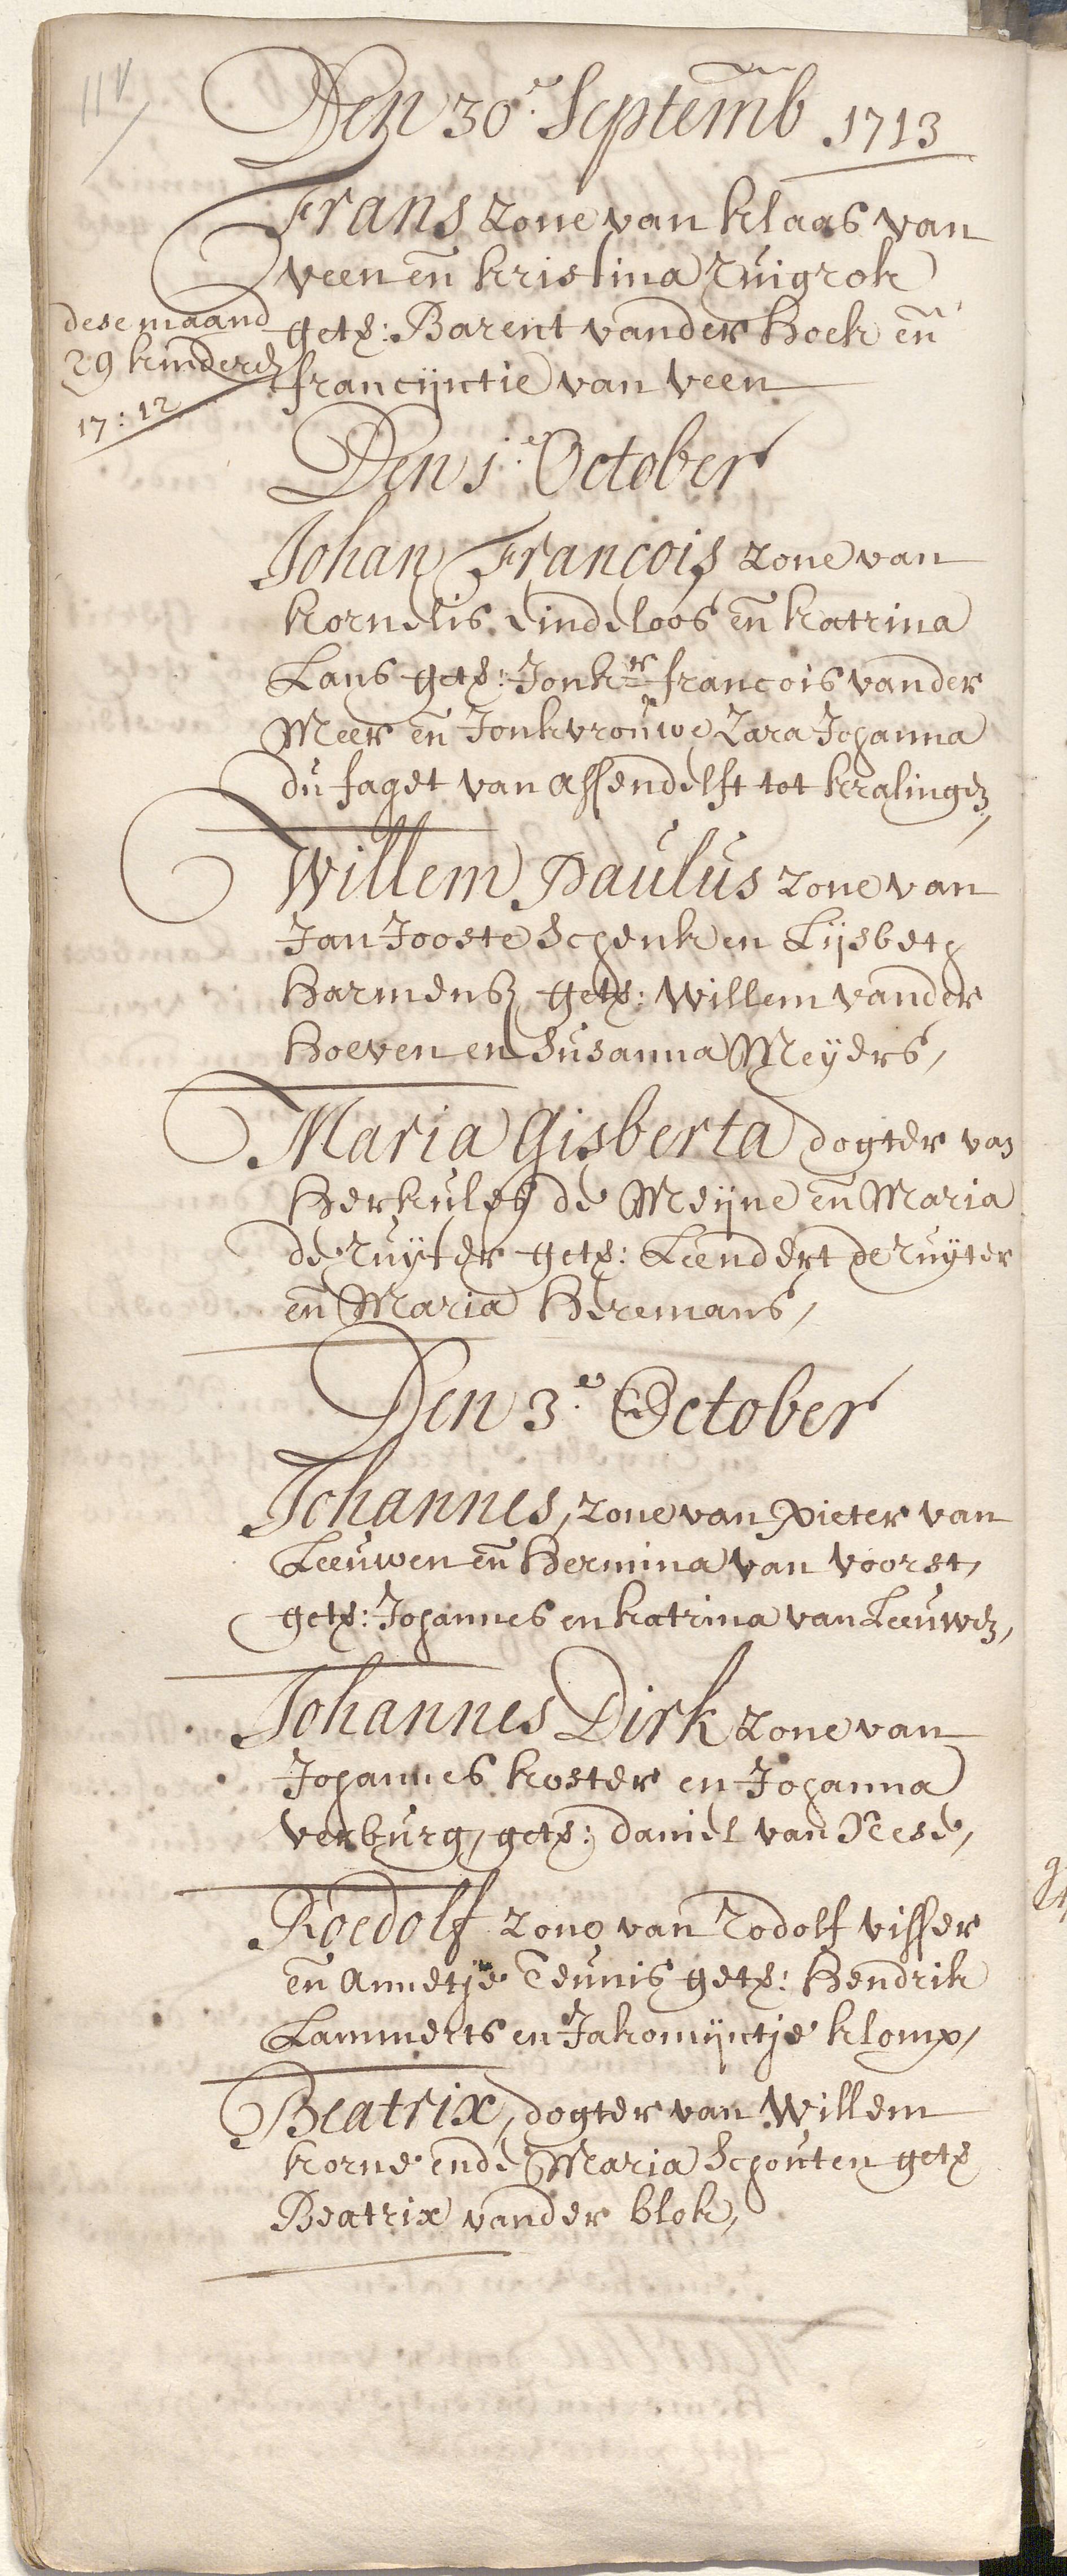 11v
Den 30e. Septemb 1713
Frans zone van klaas van
veen en kristina Ruigrok
dese maand
29 kinderen
17:12
gets: Barent vander Hoek en
francijntie van veen
Den 1e. October
Johan Francois zone van
kornelis eindeloos en katrina
Lans gets: Jonkr francois vander
Meer en Jonkvrouwe Zara Johanna
du faget van assendelft tot kralingen,
Willem Paulus zone van
Jan Jooste Schenk en Lijsbeth
Harmens gets: Willem vander
Hoeven en Susanna Meyers,
Maria Gisberta dogter van
Herkules de Meijne en Maria
de Ruyter gets: Leendert de Ruyter
en Maria Heremans,
Den 3e. October
Johannes, zone van Pieter van
Leeuwen en Hermina van Voorst,
gets: Johannes en katrina van Leeuwen,
Johannes Dirk zone van
Johannes koster en Johanna
verburg, gets: daniel van Nese,
Roedolf zone van Rodolf visser
en annetje Teunis gets: Hendrik
Lammerts en Jakomijntje klomp,
Beatrix, dogter van Willem
korne ende Maria Schouten gets
Beatrix vander blok,